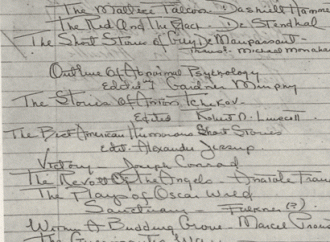 The Maltese Falcon - Dashiell Hamme
The Red And The Black - De Stendhal
The Short Stories of Guy De Maupassant -
Trans. - Michael Monahan
Outline Of Abnormal Psychology
Edited Gardner Murphy
The Stories Of Anton Tchekov.
Edited Robert N. Linscott
The Best American Humorous Short Stories
edit - Alexander Jessup
Victory - Joseph Conrad
The Revolt Of The Angels - Anatole Fran
The Plays of Oscar Wild
Sanctuary - Falkner (?)
Within A Budding Grove - Marcel Prou